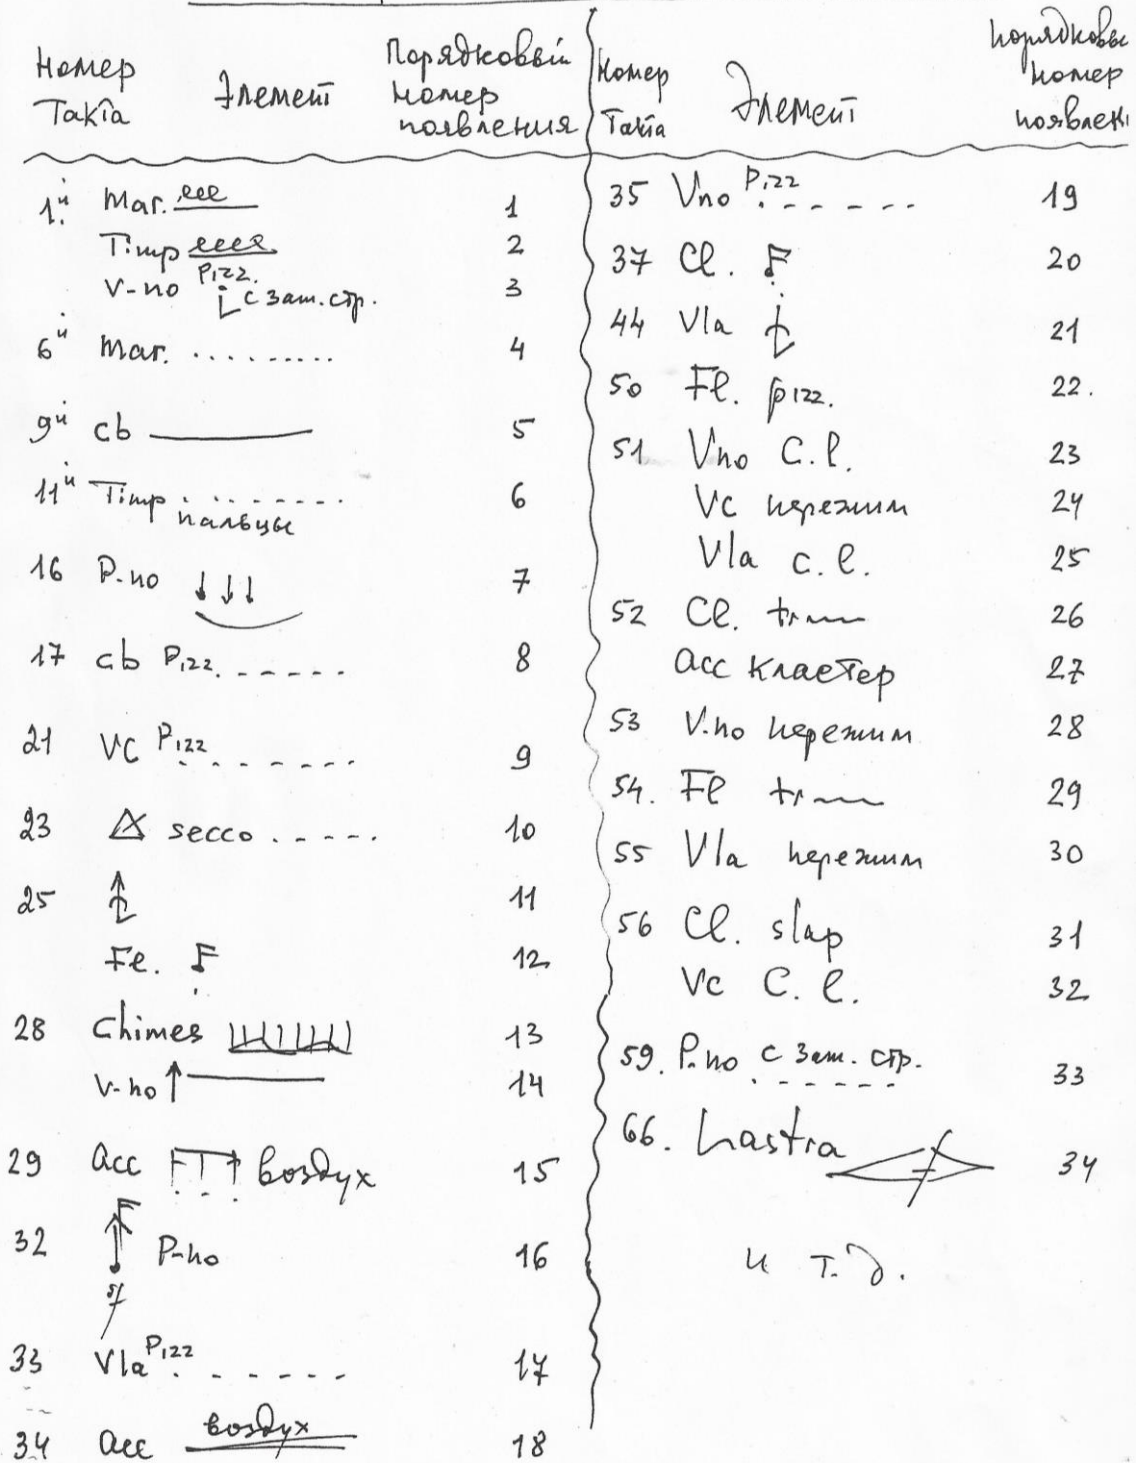 Номер Такта Элемент Порядковый номер появления
1й Mar. 1
Timp 2
V-no Pizz. с заm. стр. 3
6й Mar. ......... 4
9й Cb 5
11й Timp . . . . . . . 6
пальцы
16 P-no ↓↓↓ 7
17 Cb Pizz. - - - - - 8
21 VC Pizz . - - - - - 9
23 secco . - - - - . 10
25 11
Fl. 12
28 Chimes 13
V-no ↑ 14
29 Acc воздух 15
32 P-no 16
sf
33 Vla Pizz . - - - - - 17
34 Acc воздух 18
Номер Такта Элемент Порядковы номер появлен
35 Vno Pizz . - - - - - 19
37 Cl. 20
44 Vla 21
50 Fl. pizz. 22.
51 Vno C.l. 23
Vc пережим 24
Vla c.l. 25
52 Cl. tr 26
Acc кластер 27
53 V-no пережим 28
54. Fl tr 29
55 Vla пережим 30
56 Cl. slap 31
Vc C.l. 32
59. P-no с заm. стр. 33
. - - - - - -
66. Lastra 34
и т.д.